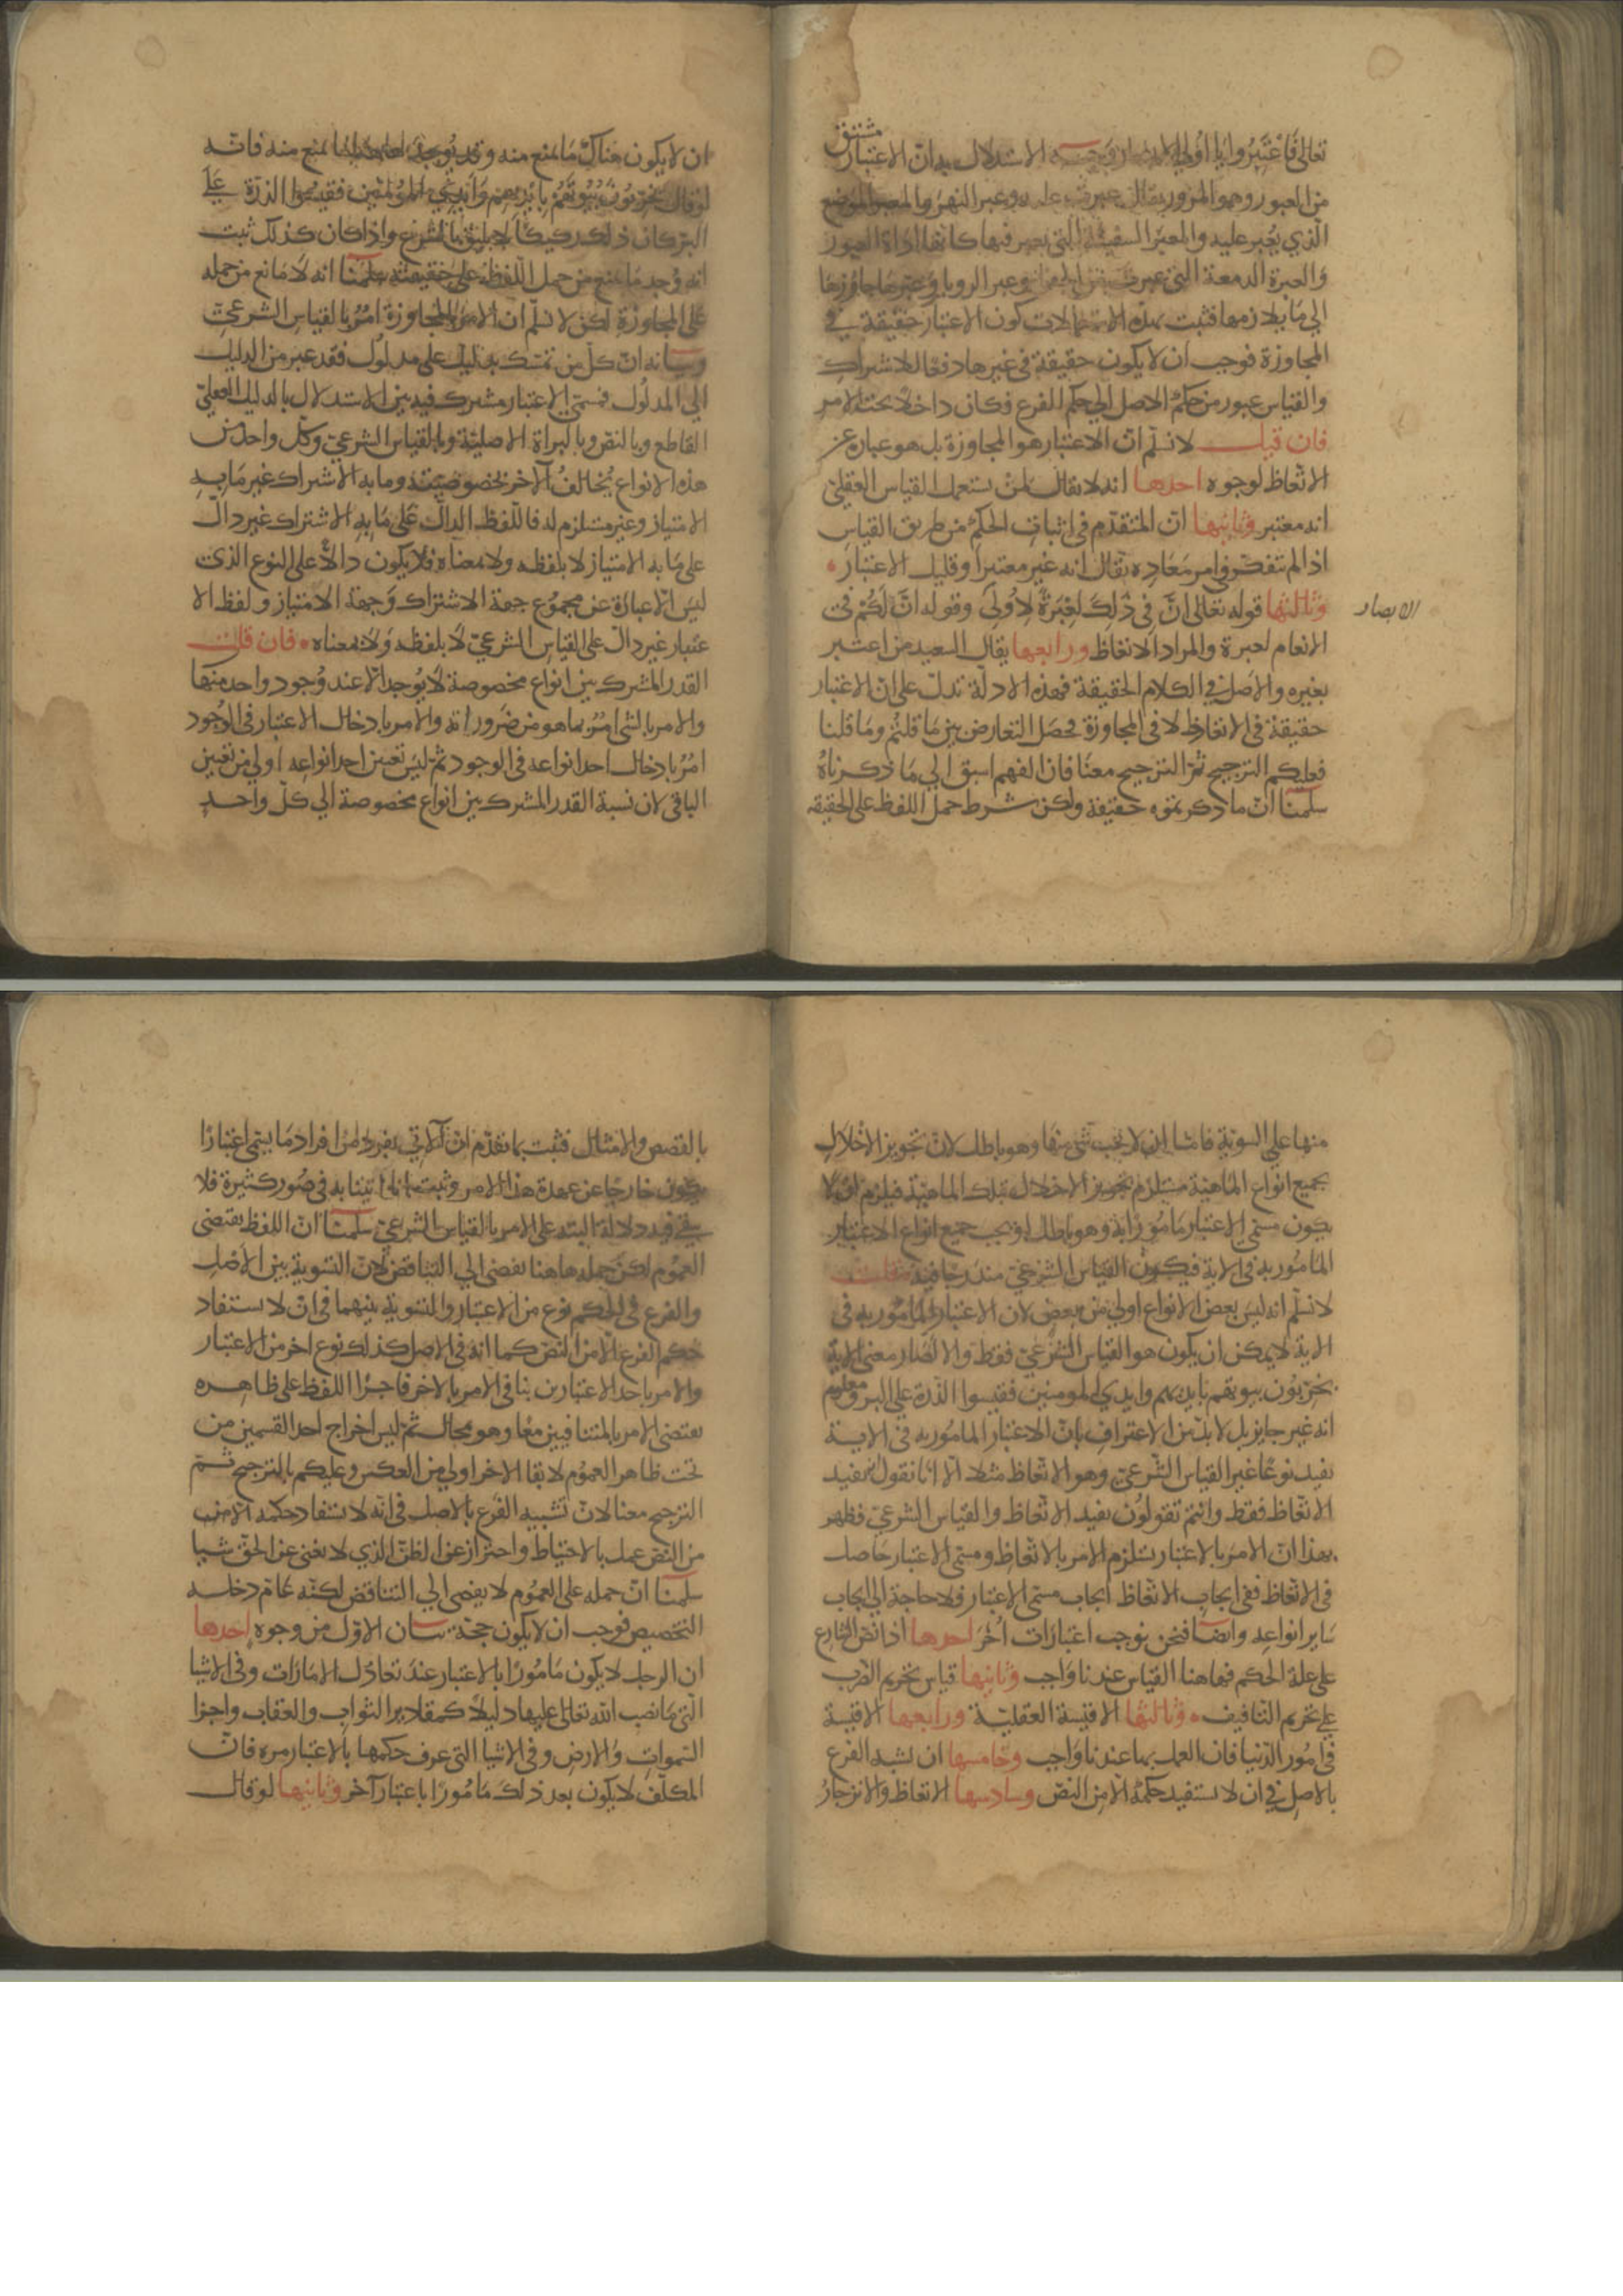 تعالى فَاعْتَبِرُوا يَا أُولِي الابصار وجه الاستدلال به انّ الاعتبار مشتق
من العبور وهو المرور يقال عبرت عليه وعبر النهر والمعبر الموضع
الّذي يُعبر عليه والمعبَر السفينة التي يعبر فيها كانها اداة العبور
وَالعبرة الدمعة التي عبرت من الجفن وعبر الرويا وَعبّرها جاوزها
الي مَا يلازمها فثبت بهذه الاستعمالات كون الاعتبار حقيقة في
المجاوزة فوجب ان لا يكون حقيقة في غيرها دفعًا للاشتراك
والقياس عبور من حكم الاصل الي حكم الفرع فكان داخلا تحت الامر
فان قيل لا نسلّم انّ الاعتبار هو المجاوزة بل هو عبارة عن
الاتّعاظ لوجوه احدها انه لا يقال لمن يستعمل القياس العقلي
انه معتبر وثانيها انّ المتقدّم في اثبات الحكم من طريق القياس
اذا لم يتفكّر في امر مَعَادِه يقال انه غير معتبر او قليل الاعتبار
وثالثها قوله تعالى انَّ فِي ذَلِكَ لَعِبْرَةً لِأُولِي وقوله انَّ لَكُمْ فِي
الابصار
الانعام لعبرة والمراد الاتعاظ ورابعها يقال السعيد من اعتبر
بغيره والاَصل في الكلام الحقيقة فهذه الادلّة تدلّ على انّ الاعتبار
حقيقة في الاتعاظ لا في المجاوزة فحصَل التعارض بين مَا قلتُم ومَا قلنا
فعليكم الترجيح ثمّ الترجيح معنَا فان الفهم اسبق الي مَا ذكرناهُ
سلّمنا انّ ما ذكرتموه حقيقة ولكن شرط حمل اللفظ على الحقيقه
ان لا يكون هناك مَا يمنع منه وقد يوجد هاهنا ما يمنع منه فانّه
لو قال يُخرّبُونَ بُيُوتَهُمْ بِأَيْدِيهِمْ وَأَيْدِي الْمُؤمنين فقيسُوا الذرّة عَلَى
البرّ كان ذلك ركيكًا لا يليق بالشرع واذا كان كذلك ثبت
انه وُجد مَا يمنع من حمل اللّفظ على حقيقته سلّمنا انه لا مَانع من حمله
على المجاوزة لكن لا نسلّم ان الامر بالمجاوزة امرٌ بالقياس الشرعيّ
وبيانه انّ كلّ من تمسّك بدليل على مدلول فقد عبر من الدليل
الي المدلُول فمسمّي الاعتبار مشترك فيه بين الاستدلال بالدليل العقليّ
القاطع وبالنصّ وبالبراة الاصليّة وبالقياس الشرعيّ وكلّ واحد من
هذه الانواع يُخالفُ الآخر بخصوصيّته وما به الاشتراك غير مَا بِهِ
الامتياز وغير مستلزم له فاللّفظ الدالّ عَلَى مَا بِهِ الاشتراك غير دالّ
على مَا به الامتياز لا بلفظه ولا بمعناه فلا يكون دالًّا على النوع الذي
ليسَ الّا عبارة عن مجمُوع جهة الاشتراك وَجهة الامتياز ولفظ الا
عتبار غير دالّ على القياس الشرعيّ لا بلفظه وَلا بمعناه فان قلت
القدر المشترك بين انواع مخصوصة لا يُوجد الّا عند وُجود واحد منهَا
والامر بالشي امرٌ بما هو من ضَروراته والامر بادخال الاعتبار في الوُجود
امرٌ بادخال احد انواعه في الوجود ثمّ ليسَ تعيين احد انواعِه اولي من تعيين
الباقي لان نسبة القدر المشترك بين انواع مخصوصة الي كلّ واحدٍ
منها علي السويّة فامّا ان لا يجب شي منهَا وهو باطل لانّ تجويز الاخلال
بجميع انواع المَاهيّة مستلزم تجويز الاخلال بتلك الماهيّة فيلزم ان لا
يكون مسمّي الاعتبار مَامُورًا به وهو باطل او يجب جميع انواع الاعتبار
المَامُور به في الاية فيكون القياس الشرعيّ مندرجًا فيه قلت
لا نسلّم انه ليسَ بعض الانواع اولي من بعض لان الاعتبار المامُور به في
الاية لا يمكن ان يكون هو القياس الشرعيّ فقط والا لصَار معنى الاية
يخربُون بيوتهم بايديهم وايدي المومنين فقيسوا الذّرة علي البر ومعلوم
انه غير جايز بل لا بدّ من الاعتراف بانّ الاعتبار المامُور به في الاية
يفيد نوعًا غير القياس الشّرعيّ وهو الاتّعاظ مثلا الّا انا نقول يفيد
الاتّعاظ فقط وانتم تقولُون يفيد الاتّعاظ والقياس الشرعيّ فظهر
بهذا انّ الامرَ بالاعتبار يستلزم الامر بالاتّعاظ ومسمّي الاعتبار حَاصل
في الاتّعاظ ففي ايجاب الاتّعاظ ايجاب مسمّي الاعتبار فلا حاجة الي ايجاب
سَاير انواعِه وايضًا فنحن نوجب اعتبارَات اُخَر احدها اذا نصّ الشارع
على علة الحكم فهاهنا القياس عندنا وَاجب وثانيها قياس تحريم الضّرب
علي تحريم التّافيف وثالثها الاقيسة العقليّة ورابعها الاقيسة
في امُور الدّنيا فان العمل بها عندنا وَاجب وخامسها ان نشبه الفرع
بالاصل في ان لا نستفيد حكمهُ الا مِنَ النصّ وسادسها الاتعاظ والانزجَارُ
بالقصص والامثال فثبت بما تقدّم انّ الآتي بفرد من افراد مَا يسمّي اعتبارًا
يكون خارجًا عن عهدة هذا الامر وثبت انّا اتينا به في صُور كثيرة فلا
يبقي فيه دلالة البته على الامر بالقياس الشرعي سلّمنا انّ اللفظ يقتضي
العمُوم لكن حمله هاهنا يفضي الي التناقض لانّ التسوية بين الاصل
والفرع في الحكم نوع من الاعتبار والتسوية بينهما في انّ لا يستفاد
حكم الفرع الّا من النصّ كما انه في الاصل كذلك نوع اخر من الاعتبار
والامر باحد الاعتبارين ينافي الامر بالاخر فاجراء اللفظ على ظاهره
يقتضي الامر بالمتنافيين معًا وهو محال ثمّ ليس اخراج احد القسمين من
تحت ظاهر العمُوم لابقا الاخر اولي من العكس وعليكم بالترجيح ثمّ
الترجيح معنا لانّ تشبيه الفَرع بالاصل في انّه لا يستفاد حكمه الا من
من النصّ عمل بالاحتياط واحتراز عن الظنّ الذي لا يغني عن الحقّ شيا
سلّمنا انّ حمله على العمُوم لا يفضي الي التناقض لكنّه عَامّ دخله
التّخصيص فوجب ان لا يكون حجّة بيان الاوّل من وجوه احدها
ان الرجل لا يكون مَامُورًا بالاعتبار عند تعادل الامَارَات وفي الاشيا
الّتي مَا نصب الله تعالى عليها دليلًا كمقادير الثواب والعقاب واجزا
السموات والارض وفي الاشيا التي عرف حكمها بالاعتبار مره فانّ
المكلّف لا يكون بعد ذلكَ مَامُورًا باعتبار آخر وثانيها لو قال